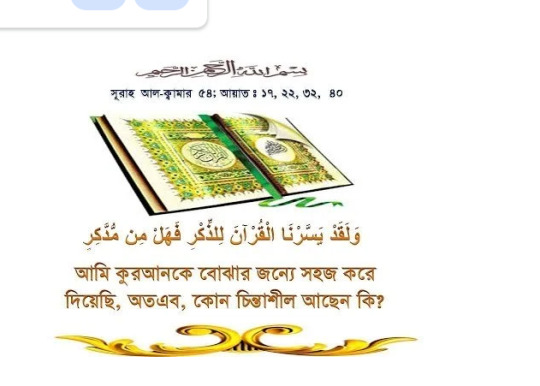 بسم الله الرحمن الرحيم
সূরাহ আল-ক্বামার ৫৪; আয়াত ঃ ১৭, ২২, ৩২, ৪০
وَلَقَدْ يَسَّرْنَا الْقُرْآنَ لِلذِّكْرِ فَهَلْ مِن مُّدَّكِرٍ
আমি কুরআনকে বোঝার জন্যে সহজ করে
দিয়েছি, অতএব, কোন চিন্তাশীল আছেন কি?